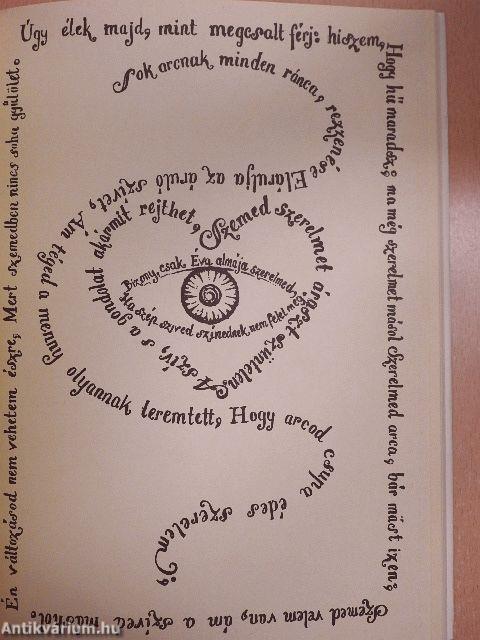 Úgy élek majd, mint megcsalt férj: hiszem,
Hogy hű maradsz; ma még szerelmet másol Szerelmed arca, bár mást izen;
Szemed velem van, ám a szíved máshol.
Én változásod nem vehetem észre, Mert szemedben nincs soha gyűlölet.
Sok arcnak minden ránca, rezzenése Elárulja az áruló szívet, Ám téged a menny olyannak teremtett, Hogy arcod csupa édes szerelem;
Szemed szerelmet áraszt szüntelen A szív, s a gondolat akármit rejthet,
Bizony, csak Éva almája szerelmed,
Ha szép szived színednek nem felel meg.
Antikvárium.hu